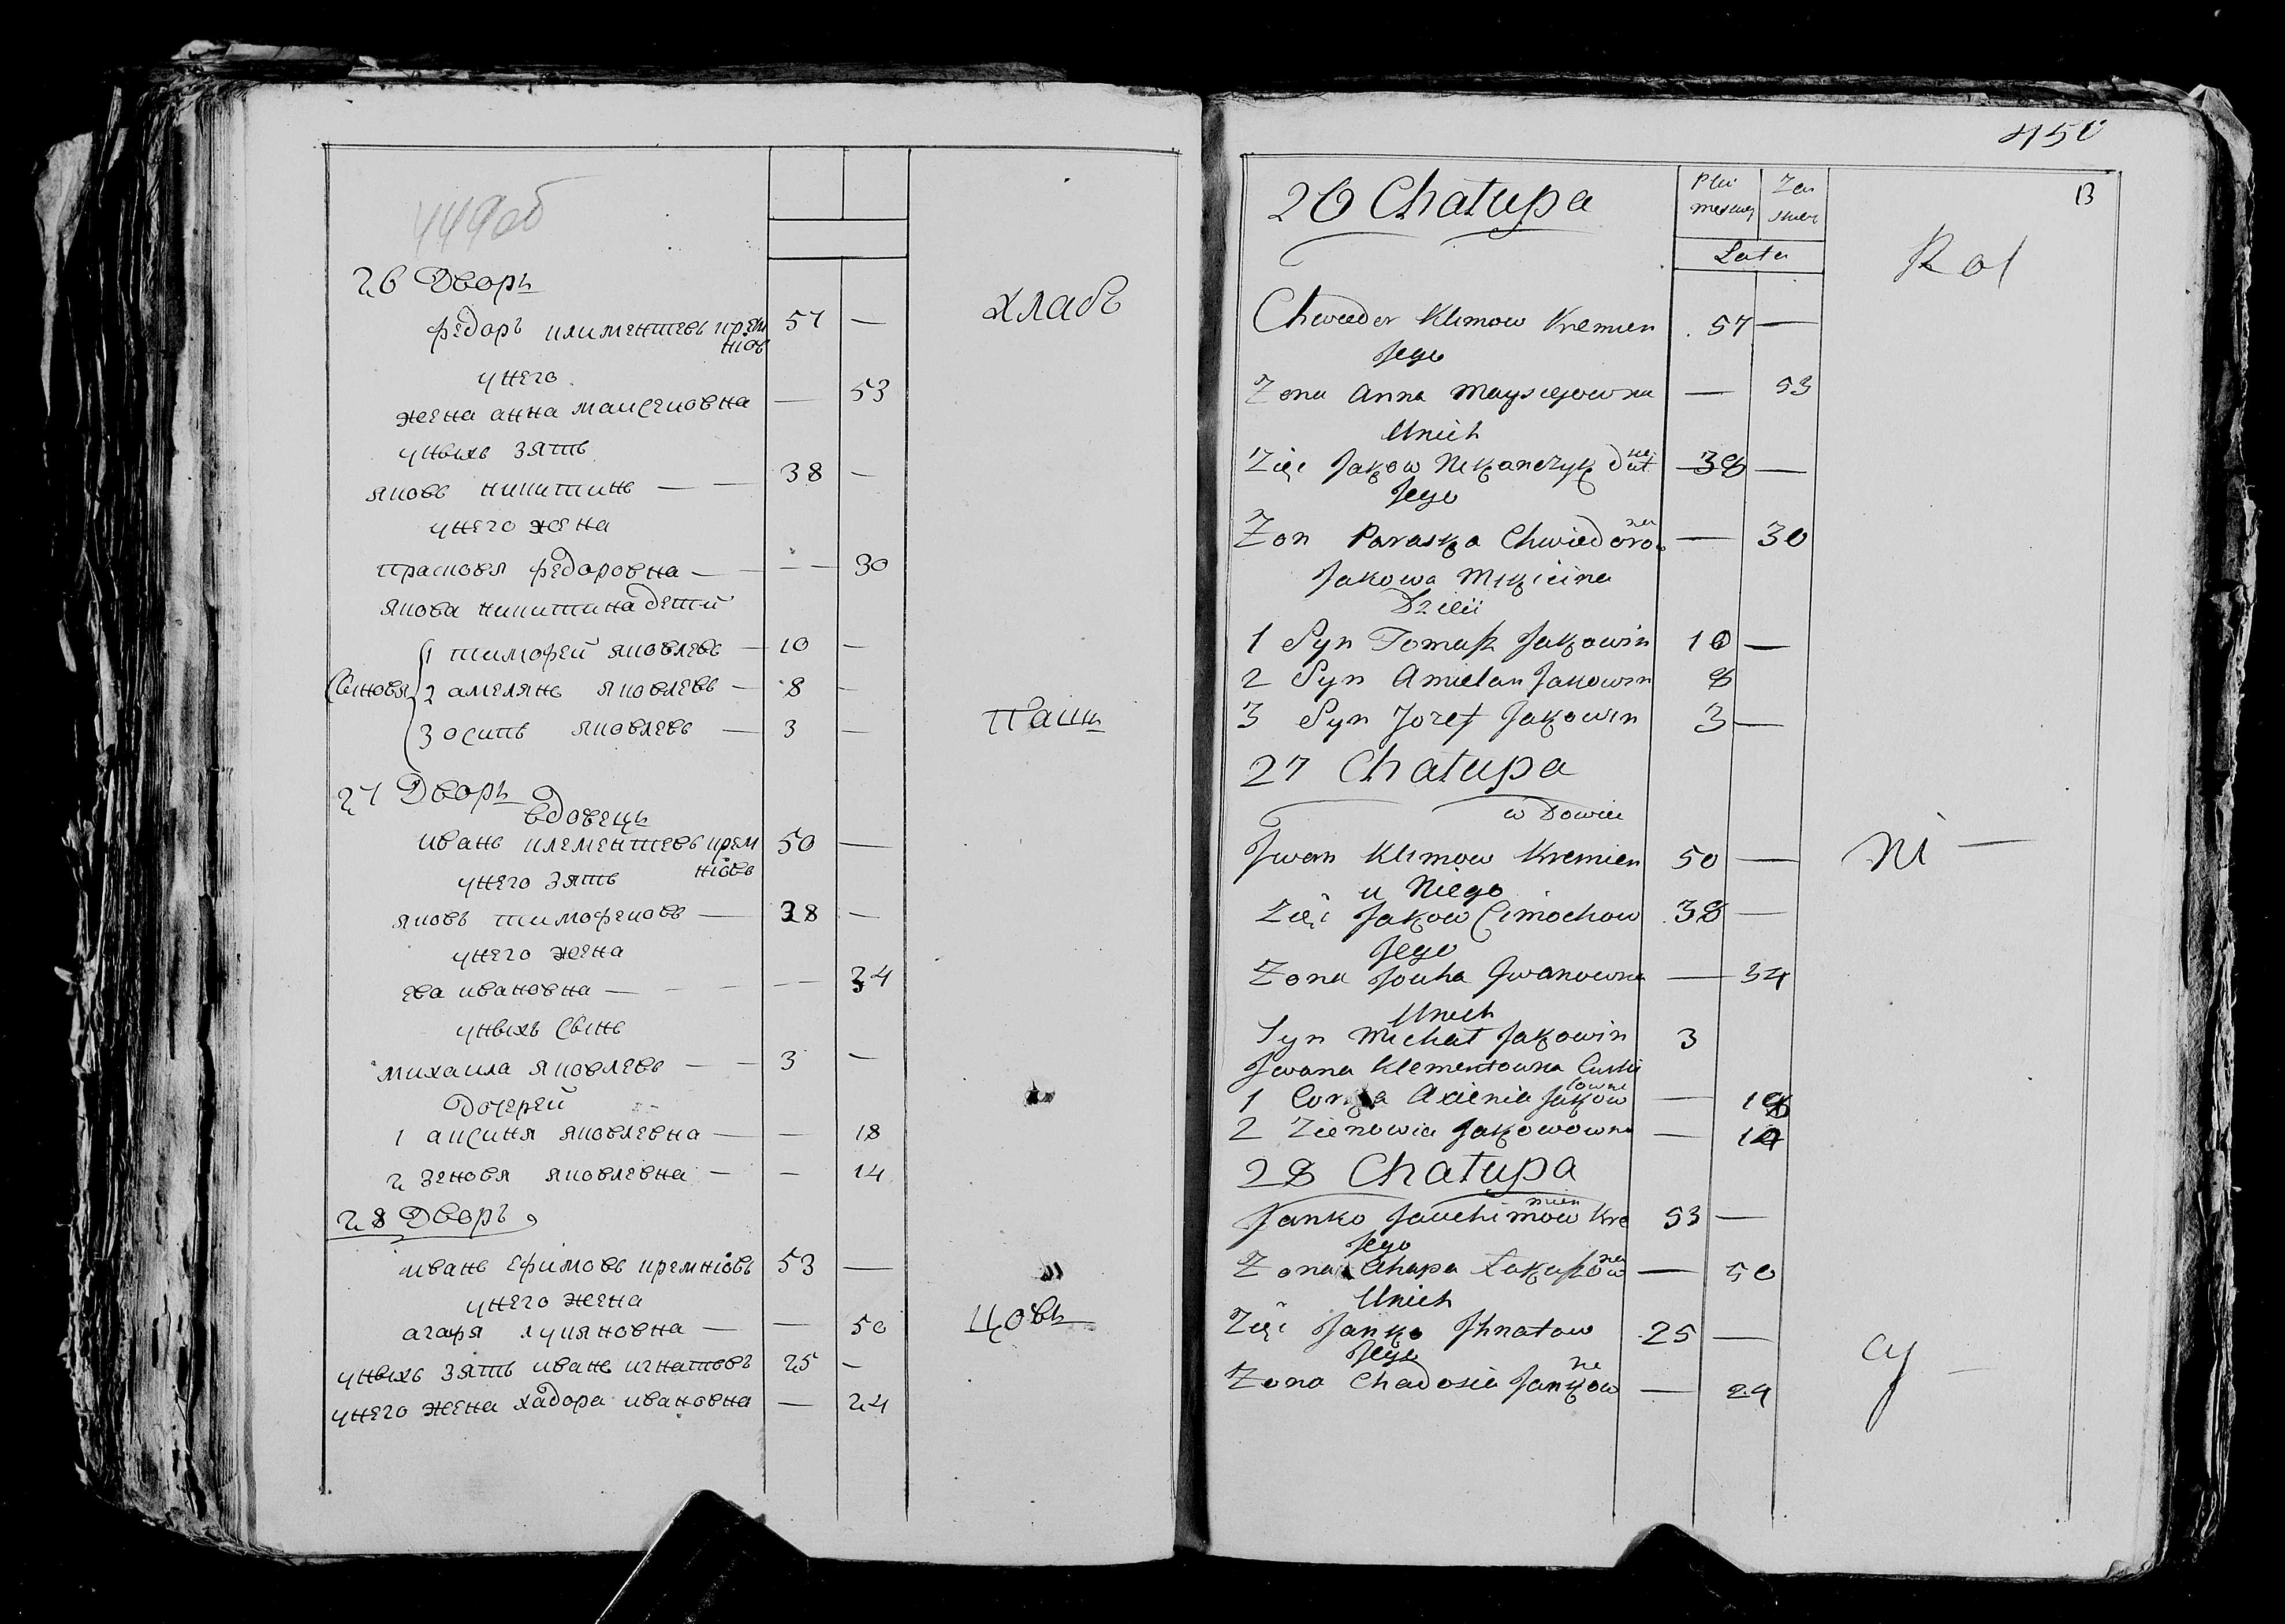 449об
26 Дворъ
федоръ климентевъ крем
ніовъ
57 —
унего
жена анна маисеиовна — 53
унихъ зять
яковъ никитинъ — — 38 —
унего жена
прасковя федоровна — — — 30
якова никитина дети
1 тимофей яковлевъ — 10 —
Сыновя 2 амелянъ яковлевъ — 8 —
3 осипъ яковлевъ — 3 —
27 Дворъ
вдовецъ
иванъ клементевъ крем 50 —
унего зять ніовъ
яковъ тимофеиовъ — 38 —
унего жена
ева ивановна — — — — 34
унихъ Сынъ
михаила яковлевъ — — 3 —
Дочерей
1 аксиня яковлевна — — 18
2 зеновя яковлевна — — 14
28 Дворъ
иванъ ефимовъ кремніовъ 53 —
унего жена
агафя лукяновна — — 50
унихъ зять иванъ игнатовъ 25 —
унего жена хадора ивановна — 24
хлабъ
паш
цовъ
450
13
26 Chałupa
Płci męskiey Żeń skiey
Lata
Rol
Chwiedor Klimow Kremien 57 —
Jego
Zona Anna Mayscyowna — 53
Unich
Zięć Jakow Nikanczyk 38 —
Jego
Zon Paraska Chwiedorow na — 30
Jakowa Mikicina
Dzieii
1 Syn Tomasz Jakowin 10 —
2 Syn Amielan Jakowin 8
3 Syn Jozef Jakowin 3 —
27 Chałupa
w Dowiec
Jwan Klimow Kremien 50 —
u Niego
Zięć Jakow Cimochow 38 —
Jego
Zona Jouha Jwanowna — 34
Unich
Syn Michał Jakowin 3
Jwana Klementowna Curki
1 Corka Axienia Jakow lowne — 18
2 Zienowia Jakowowna — 14
28 Chałupa
Janko Jauchimow Kre mien 53 —
Jego
Zona Ahapa Łukaszow na — 50
Unich
Zięć Janko Jhnatow 25 —
Jego
Zona Chadosia Jankow ne — 24
ni —
cy —